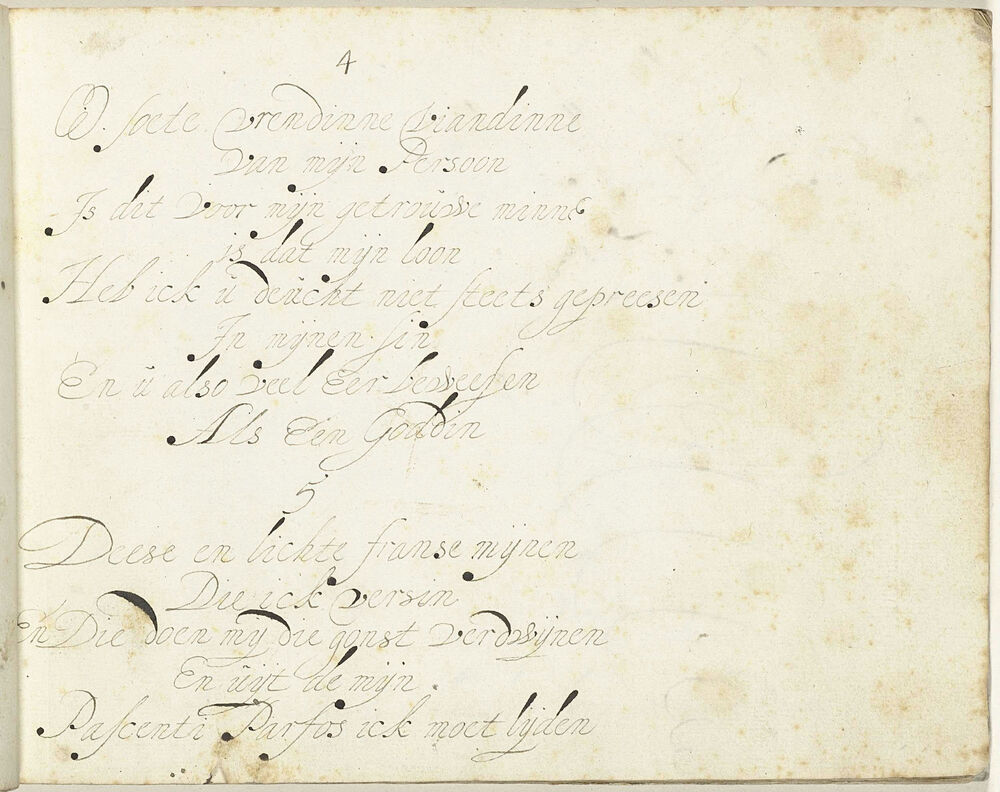 4
O. soete vrendinne viandinne
van mijn Persoon
Is dit voor mijn getrouwe minne
is dat mijn loon
Heb ick ú deúcht niet steets gepreesen
In mijnen sin
En ú also veel Eer beweesen
Als Een Goddin
5
Deese en lichte franse mijnen
Die ick versin
En Die doen mij die gonst verdwijnen
En úijt de mijn
Pascenti Parfos ick moet lijden